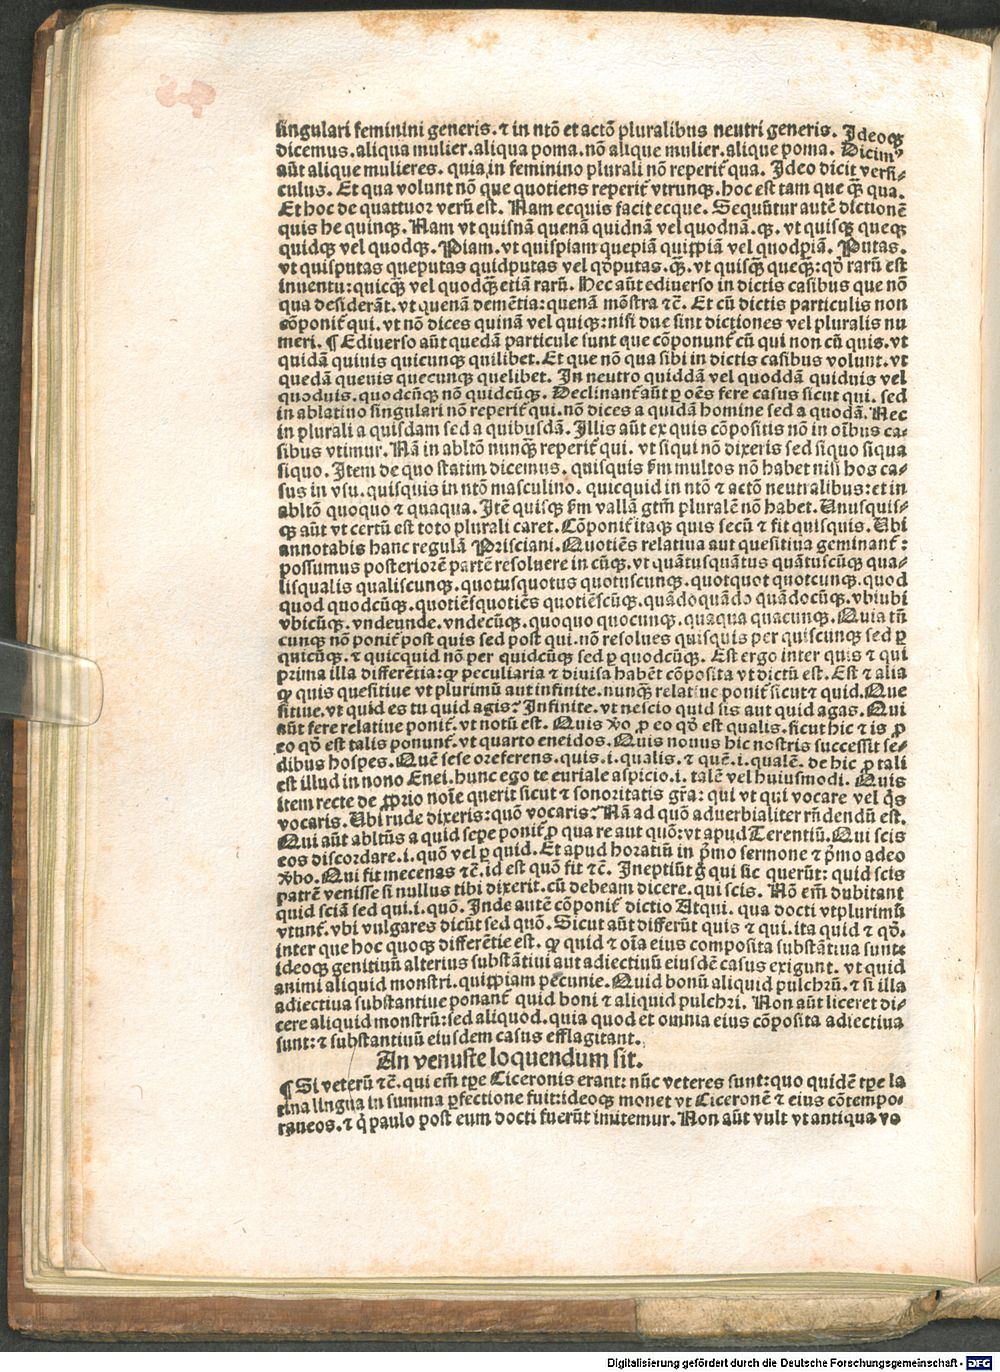 singulari feminini generis. ⁊ in ntō et actō pluralibus neutri generis. Ideoqꝫ
dicemus. aliqua mulier. aliqua poma. nō alique mulier. alique poma. Dicimꝰ
aūt alique mulieres. quia in feminino plurali nō reperit̃ qua. Ideo dicit versi-
culus. Et qua volunt nō que quotiens reperit̃ vtrunqꝫ. hoc est tam que qꝫ̃ qua.
Et hoc de quattuor verū est. Nam ecquis facit ecque. Sequūtur autē dictionē
quis he quinqꝫ. Nam vt quisnā quenā quidnā vel quodnā. qꝫ. vt quisqꝫ queqꝫ
quidqꝫ vel quodqꝫ. Piam. vt quispiam quepiā quippiā vel quodpiā. Putas.
vt quisputas queputas quidputas vel qd̛putas. qꝫ̃. vt quisqꝫ̃ queqꝫ̃: qd̛ rarū est
inuentu: quicqꝫ̃ vel quodqꝫ̃ etiā rarū. Hec aūt ediuerso in dictis casibus que nō
qua desiderāt. vt quenā demētia: quenā mōstra ⁊c̄. Et cū dictis particulis non
cōponit̃ qui. vt nō dices quinā vel quiqꝫ: nisi due sint dictiones vel pluralis nu
meri. ¶ Ediuerso aūt quedā particule sunt que cōponunt̃ cū qui non cū quis. vt
quidā quiuis quicunqꝫ quilibet. Et que nō qua sibi in dictis casibus volunt. vt
quedā queuis quecunqꝫ quelibet. In neutro quiddā vel quoddā quiduis vel
quoduis. quodcūqꝫ nō quidcūqꝫ. Declinant̃ aūt ꝑ oēs fere casus sicut qui. sed
in ablatino singulari nō reperit̃ qui. nō dices a quidā homine sed a quodā. Nec
in plurali a quisdam sed a quibusdā. Illis aūt ex quis cōpositis nō in oībus ca-
sibus vtimur. Nā in abltō nunqꝫ̃ reperit̃ qui. vt siqui nō dixeris sed siquo siqua
siquo. Item de quo statim dicemus. quisquis ẜm multos nō habet nisi hos ca-
sus in vsu. quisquis in ntō masculino. quicquid in ntō ⁊ actō neutralibus: et in
abltō quoquo ⁊ quaqua. Itē quisqꝫ ẜm vallā gtm̄ pluralē nō habet. Unusquis-
qꝫ aūt vt certū est toto plurali caret. Cōponit̃ itaqꝫ quis secū ⁊ fit quisquis. Ubi
annotabis hanc regulā Prisciani. Quotiēs relatiua aut quesitiua geminant̃:
possumus posteriorē partē resoluere in cūqꝫ. vt quātusquātus quātuscūqꝫ qua-
lisqualis qualiscunqꝫ. quotusquotus quotuscunqꝫ. quotquot quotcunqꝫ. quod
quod quodcūqꝫ. quotiēsquotiēs quotiēscūqꝫ. quādoquādo quādocūqꝫ. vbiubi
vbicūqꝫ. vndeunde. vndecūqꝫ. quoquo quocunqꝫ. quaqua quacunqꝫ. Quia tn̄
cunqꝫ nō ponit̃ post quis sed post qui. nō resolues quisquis per quiscunqꝫ sed ꝑ
quicūqꝫ. ⁊ quicquid nō per quidcūqꝫ sed ꝑ quodcūqꝫ. Est ergo inter quis ⁊ qui
prima illa differētia: ꝙ peculiaria ⁊ diuisa habēt cōposita vt dictū est. Est ⁊ alia
ꝙ quis quesitiue vt plurimū aut infinite. nunqꝫ̃ relatiue ponit̃ sicut ⁊ quid. Que
sitiue. vt quid es tu quid agis? Infinite. vt nescio quid sis aut quid agas. Qui
aūt fere relatiue ponit̃. vt notū est. Quis v̊o ꝓ eo qd̛ est qualis. sicut hic ⁊ is ꝓ
eo qd̛ est talis ponunt̃. vt quarto eneidos. Quis nouus hic nostris successit se-
dibus hospes. Quē sese ore ferens. quis. i. qualis. ⁊ quē. i. qualē. de hic ꝓ tali
est illud in nono Enei. hunc ego te euriale aspicio. i. talē vel huiusmodi. Quis
item recte de ꝓprio noīe querit sicut ⁊ sonoritatis gr̄a: qui vt qui vocare vel q̇s
vocaris. Ubi rude dixeris: quō vocaris? Nā ad quō aduerbialiter rn̄dendū est.
Qui aūt abltūs a quid sepe ponit̃ ꝓ qua re aut quō: vt apud Terentiū. Qui scis
eos discordare. i. quō vel ꝑ quid. Et apud horatiū in p̄mo sermone ⁊ p̄mo adeo
v̊bo. Qui fit mecenas ⁊c̄. id est quō fit ⁊c̄. Ineptiūt g̊ qui sic querūt: quid scis
patrē venisse si nullus tibi dixerit. cū debeam dicere. qui scis. Nō em̄ dubitant
quid sciā sed qui. i. quō. Inde autē cōponit̃ dictio Atqui. qua docti vtplurimū
vtunt̃. vbi vulgares dicūt sed quō. Sicut aūt differūt quis ⁊ qui. ita quid ⁊ qd̛.
inter que hoc quoqꝫ differētie est. ꝙ quid ⁊ oīa eius composita substātiua sunt:
ideoqꝫ genitiuū alterius substātiui aut adiectiuū eiusdē casus exigunt. vt quid
animi aliquid monstri. quippiam pecunie. Quid bonū aliquid pulchrū. ⁊ si illa
adiectiua substantiue ponant̃ quid boni ⁊ aliquid pulchri. Non aūt liceret di-
cere aliquid monstrū: sed aliquod. quia quod et omnia eius cōposita adiectiua
sunt: ⁊ substantiuū eiusdem casus efflagitant.
An venuste loquendum sit.
¶ Si veterū ⁊c̄. qui em̄ tꝑe Ciceronis erant: nūc veteres sunt: quo quidē tꝑe la
tina lingua in summa ꝑfectione fuit: ideoqꝫ monet vt Ciceronē ⁊ eius cōtempo-
raneos. ⁊ q̇ paulo post eum docti fuerūt imitemur. Non aūt vult vt antiqua vo
Digitalisierung gefördert durch die Deutsche Forschungsgemeinschaft - DFG